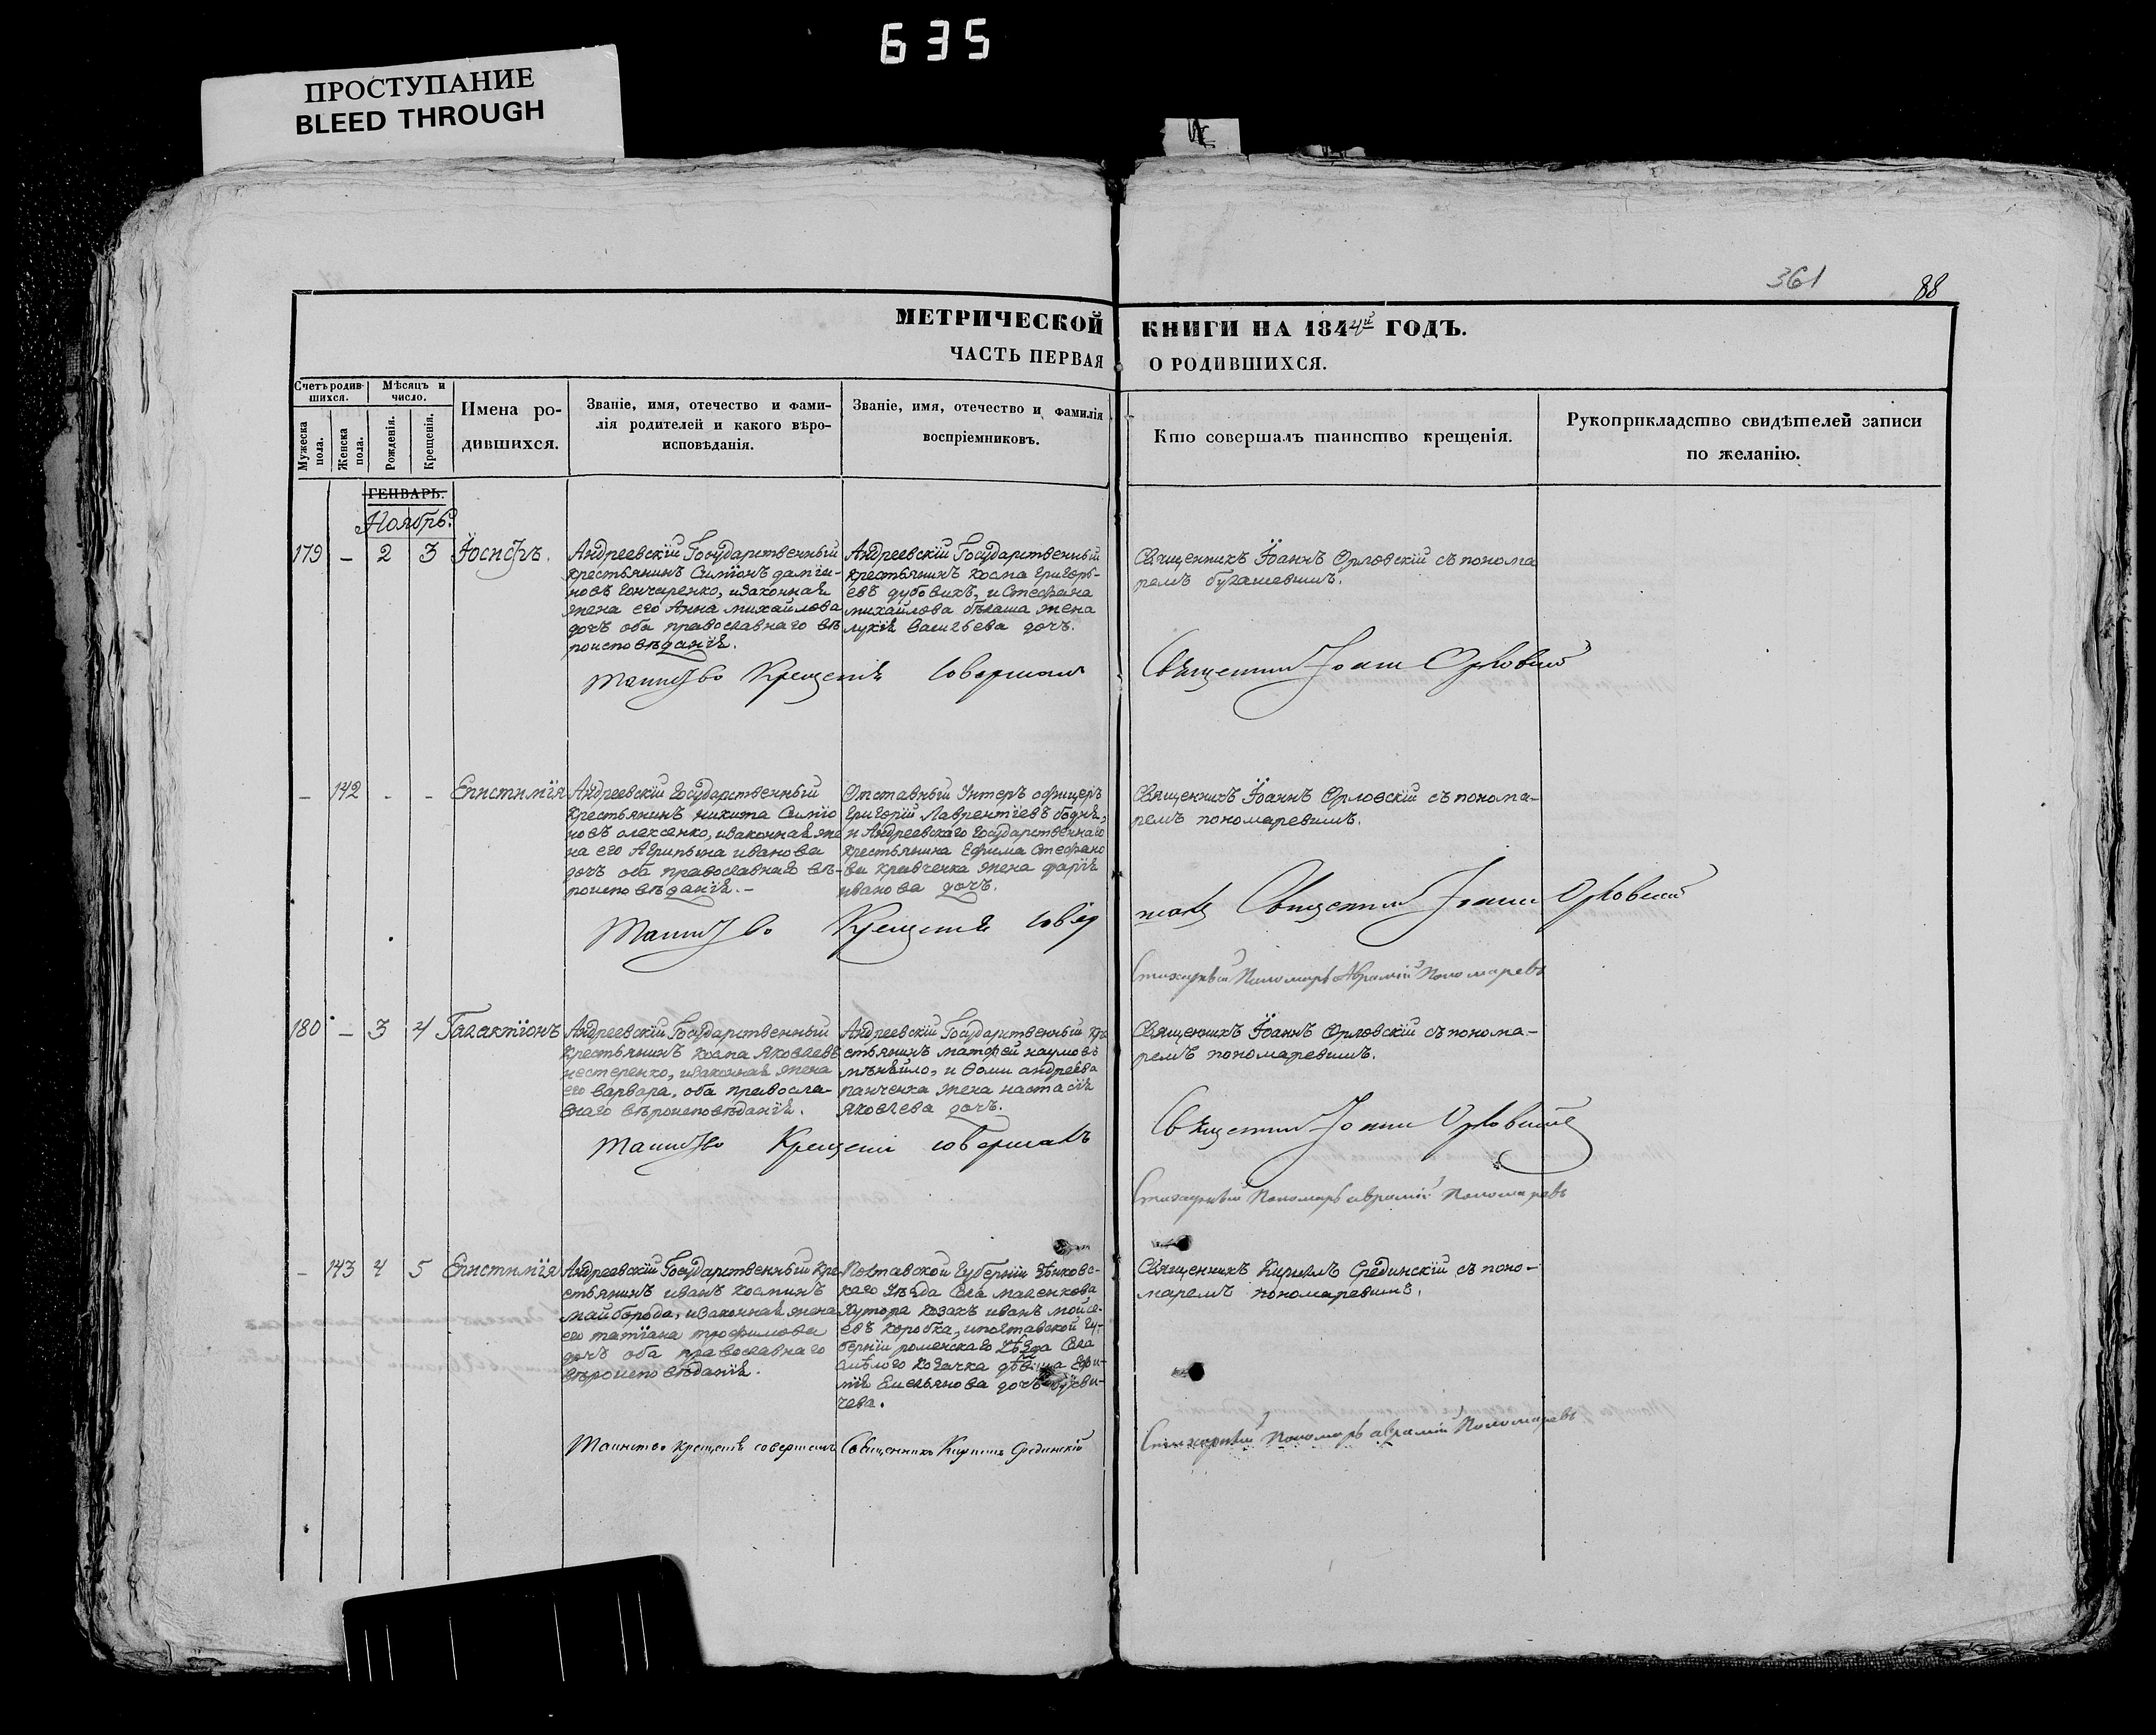 635
ПРОСТУПАНИЕ
BLEED THROUGH
361
88
МЕТРИЧЕСКОЙ КНИГИ НА 1844й ГОДЪ.
ЧАСТЬ ПЕРВАЯ О РОДИВШИХСЯ.
Счетъ родив-
шихся.
Мѣсяцъ и
число.
Мужеска
пола.
Женска
пола.
Рожденія.
Крещенія.
Имена ро-
дившихся.
Званіе, имя, отечество и фами-
лія родителей и какого вѣро-
исповѣданія.
Званіе, имя, отечество и фамилія
воспріемниковъ.
Кто совершалъ таинство крещенія.
Рукоприкладство свидѣтелей записи
по желанію.
ГЕНВАРЬ.
Ноябрь
179 – 2 3 Іосифъ.
Андреевскій Государственный
крестьянинъ Симіонъ даміа-
новъ Гончаренко, изаконная
жена его Анна михайлова
дочъ оба православнаго вѣ
роисповѣданія.
Андреевскій Государственный
крестьянинъ Косма Григорь-
евъ дубовикъ, и Стефана
михайлова бѣлаша жена
лукія васильева дочъ.
Священникъ Іоаннъ Орловскій съ понома
ремъ бугашевимъ.
Таинство Крещенія совершалъ Священникъ Іоаннъ Орловскій
– 142 - - Епистимія
Андреевскій Государственный
Крестьянинъ никита Симіо
новъ алексенко, изаконная же
на его Агрипина иванова
дочъ оба православнаго вѣ-
роисповѣданія.–
Отставный Унтеръ офицеръ
Григорій Лаврентіевъ бодня,
и Андреевскаго Государственнаго
крестьянина Ефима Стефано
ва кравченка жена дарія
иванова дочъ.
Священникъ Іоаннъ Орловскій съ понома-
ремъ пономаревимъ.
Таинство Крещенія совер шалъ Священникъ Іоаннъ Орловскій
Стихарный Пономарь Аврамій Пономаревъ
180 – 3 4 Галактіонъ
Андреевскій Государственный
Крестьянинъ Косма Яковлевъ
нестеренко, изаконная жена
его варвара, оба правосла-
внаго вѣроисповѣданія.
Андреевскій Государственный кре
стьянинъ матфей наумовъ
мѣняйло, и Ѳомы андреева
панченка жена настасія
яковлева дочъ.
Священникъ Іоаннъ Орловскій съ понома-
ремъ пономаревимъ.
Таинство Крещенія совершалъ Священникъ Іоаннъ Орловскій
Стихарный Пономарь аврамій Пономаревъ
– 143 4 5 Епистимія
Андреевскій Государственный кре
стьянинъ иванъ косминъ
майборода, изаконная жена
его татіана трофимова
дочъ оба православнаго
вѣроисповѣданія.
Полтавской Губерніи Зѣньковс-
каго уѣзда Села маленкова
Хутора козакъ иванъ мойсе-
евъ коробка, иполтавской гу-
берніи роменскаго уѣзда Села
Смѣлого козачка дѣвица Ефи-
мія Емельянова дочъ
чева.
Священникъ Кириллъ Срединскій съ поно-
маремъ пономаревимъ.
Таинство крещенія совершалъ Священникъ Кириллъ Срединскій
Стихарный Пономарь аврамій Пономаревъ